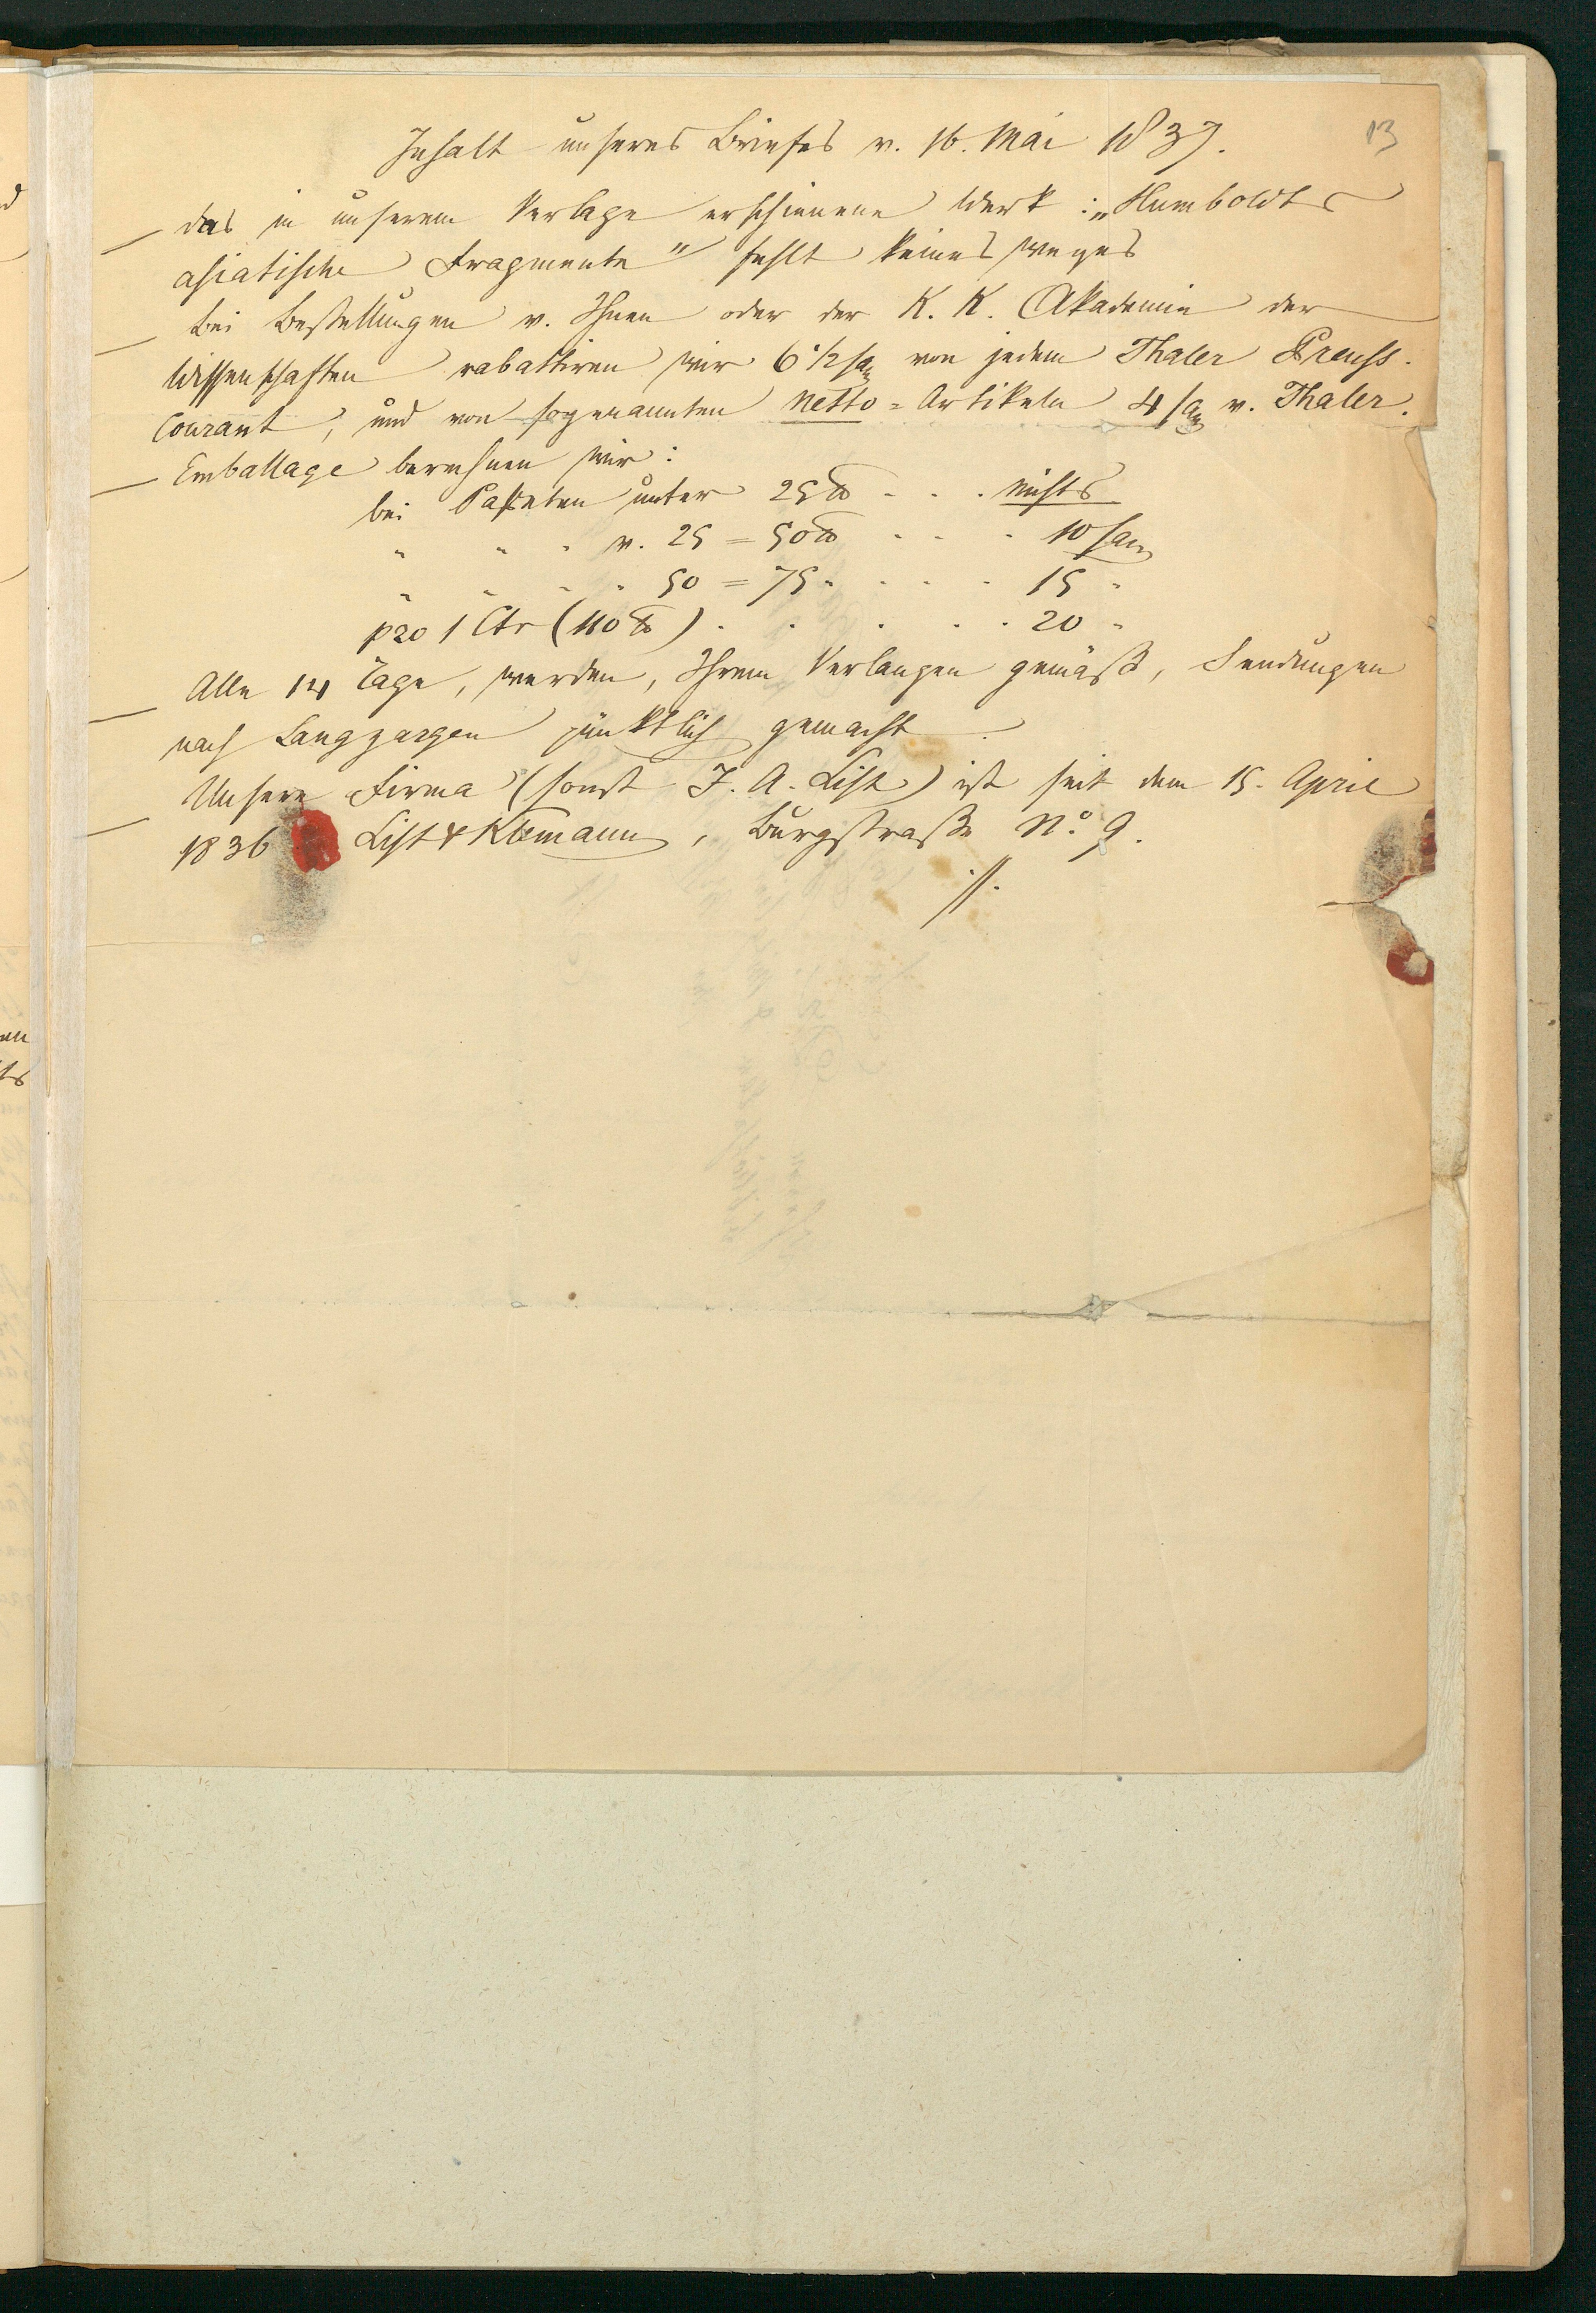 13
Inhalt unseres Briefes v. 16. Mai 1837.
— das in unserem Verlage erschienene Werk: „Humboldts
asiatische Fragmente" fehlt keinesweges
— bei Bestellungen v. Ihnen oder der K. K. Akademie der
Wissenschaften rabattiren wir 6 1/2 sgr von jedem Thaler Preuss.
Courant, und von sogenannten Netto=Artikeln 4 sgr v. Thaler.
— Emballage berechnen wir:
bei Paketen unter 25 ℔ . . . nichts
" " " v. 25 = 50 ℔ . . . 10 sgr
" " " " 50 = 75 " . . . 15 "
pro 1 Ctr (110 ℔) . . . . . . 20 "
— Alle 14 Tage, werden, Ihrem Verlangen gemäß, Sendungen
nach Langzargen pünktlich gemacht.
— Unsere Firma (sonst J. A. List) ist seit dem 15. April
1836 List & Klemann, Burgstraße No. 9.
./.